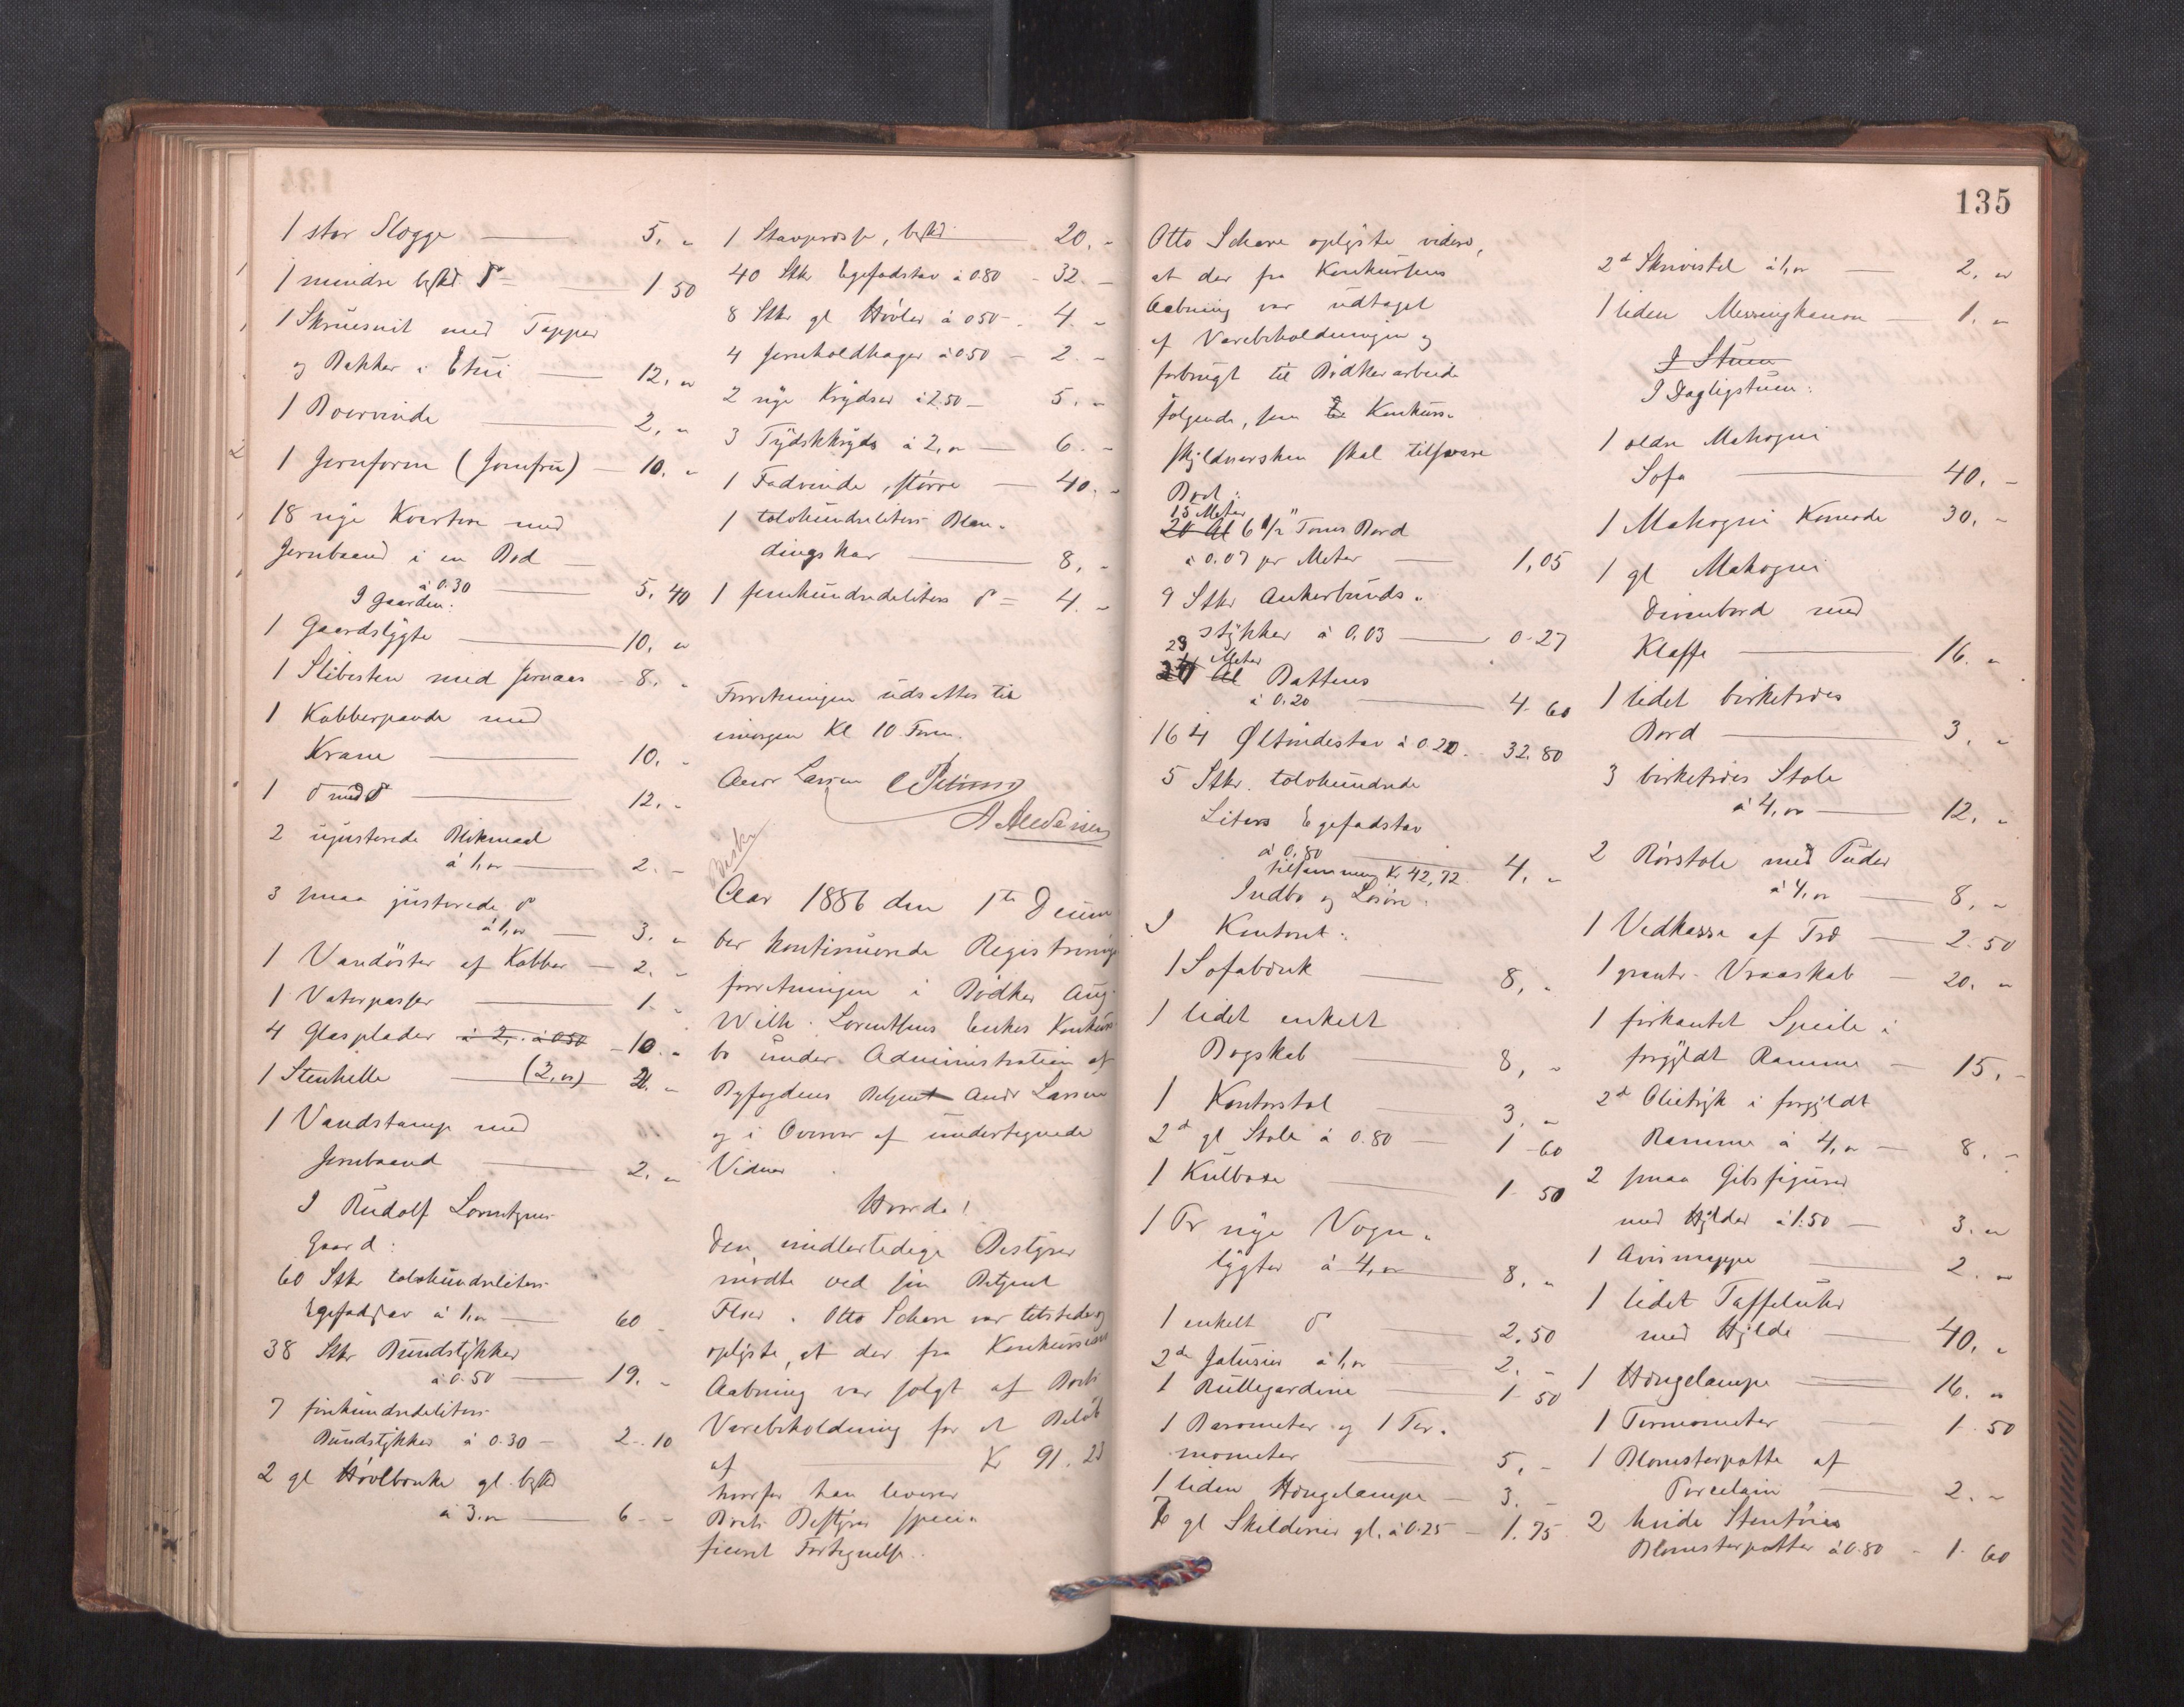 1 stor Slægge — 5. "
1 mindre bsktd do — 1 50
1 Skruesnit med Tapper
og Bakker i Etui — 12. "
1 Borvinde — 2. "
1 Jernform (Jomfru) — 10. "
18 nye Kvarter med
Jernbaand i en Bod —
à 0.30 — 5. 40
I Gaarden:
1 Gaardslygte — 10. "
1 Slibesten med Jernaas — 8. "
1 Kobberpande med
Krane — 10. "
1 do med do — 12. "
2 ujusterede Blikmaal
à 1, " — 2. "
3 smaa justerede do
à 1, " — 3. "
1 Vandøster af Kobber — 2. "
1 Vaterpasser — 1. "
4 Glasplader à 2, " à 0.50 — 10. "
1 Stenhelle — (2, ") 2. "
1 Vandstamp med
Jernbaand — 2. "
I Rudolf Lorentzens
Gaard:
60 Stkr tolvhundreliters
Egefadstav à 1, " — 60 "
38 Stkr Bundstykker
à 0.50 — 19. "
7 firehundredeliters
Bundstykker à 0.30 — 2. 10
2 gl Høvlbænke gl. bsktd
à 3. " — 6. "
1 Stavpresse, bsktd — 20. "
40 Stkr Egefadstav à 0.80 — 32. "
8 Stkr gl Høvler à 0.50 — 4. "
4 Jernholdhager à 0.50 — 2. "
2 nye Krydser à 2.50 — 5. "
3 Tydskkryds à 2, " — 6. "
1 Fadvinde, større — 40. "
1 tolvhundreliters Blan-
dingskar — 8. "
1 femhundredeliters do — 4. "
Forretningen udsattes til
imorgen Kl 10 Form.
Andr Larsen
Aar 1886 den 1te Decem
ber kontinuerede Registrerings
forretningen i Bødker Aug.
Wilh. Lorentzens Enkes Konkurs
bo under Administration af
Byfogdens Betjent Andr Larsen
og i Overvær af undertegnede
Vidner.
Hvorda!
Den midlertidige Bestyrer
mødte ved sin Betjent
Fløer. Otto Schave var tilstede og
oplyste, at der fra Konkursens
Aabning var solgt af Boets
Varebeholdning for et Beløb
af — Kr 91. 25
hvorfor han leverer
Boets Bestyrer speci-
ficeret Fortegnelse.
135
Otto Schave oplyste videre,
at der fra Konkursens
Aabning var udtaget
af Varebeholdningen og
forbrugt til Bødkerarbeide
følgende, som Konkurs-
skyldnersken skal tilsvare
Boet:
15 Meter
20 Al 6 1/2" Toms Bord
à 0.07 pr Meter — 1,05
9 Stkr Ankerbunds-
stykker à 0,03 — 0.27
23 Meter
Al Battens
à 0.20 — 4. 60
164 Øltøndestav à 0.20 — 32.80
5 Stkr. tolvhundrede
Liters Egefadstav
à 0,80 — 4. "
tilsammen Kr 42,72.
Indbo og Løsøre:
I Kontoret:
1 Sofabænk — 8. "
1 lidet enkelt
Bogskab — 8. "
1 Kontorstol — 3. "
2 d gl Stole à 0.80 — 1 60
1 Kulboxe — 1 50
1 Pr nye Vogn-
lygter à 4, " — 8. "
1 enkelt do — 2.50
2 de Jalusier à 1, " — 2. "
1 Rullegardine — 1 50
1 Barometer og 1 Ter-
mometer — 5. "
1 liden Hængelampe — 3. "
7 gl Skilderier gl. à 0.25 — 1.75
2 d Skrivestel à 1, " — 2. "
1 liden Messingkanon — 1. "
I Stuen
I Dagligstuen:
1 ældre Mahogni
Sofa — 40. "
1 Mahogni Komode 30. "
1 gl Mahogni
Divanbord med
Klaffe — 16. "
1 lidet birketræes
Bord — 3. "
3 birketræes Stole
à 4, " — 12. "
2 Rørstole med Puder
à 4, " — 8. "
1 Vedkasse af Træ — 2.50
1 grantr. Vraaskab — 20. "
1 firkantet Speile i
forgyldt Ramme — 15. "
2 d Olietryk i forgyldt
Ramme à 4, " — 8. "
2 smaa Gibsfigurer
med Hylder à 1.50 — 3. "
1 Avismappe — 2. "
1 lidet Taffeluhr
med Hylde — 40. "
1 Hængelampe — 16. "
1 Termometer — 1. 50
1 Blomsterpotte af
Porcelain — 2. "
2 hvide Stentøies
Blomsterpotter à 0.80 — 1. 60